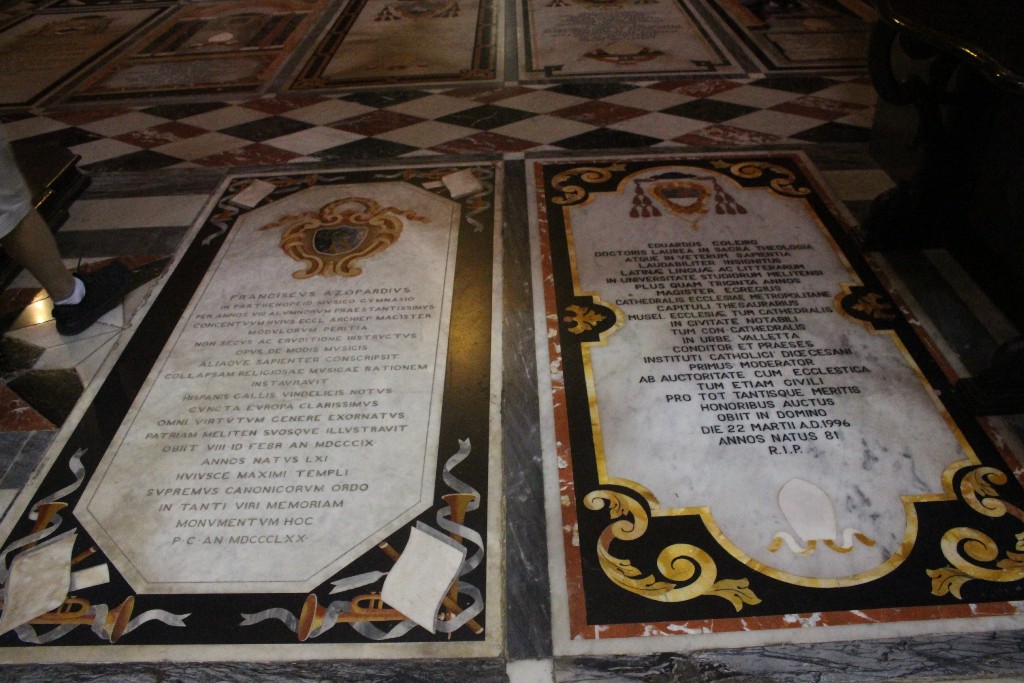 FRANCISCVS AZOPARDIVS
IN PARTHENOPEIO MVSICO GYMNASIO
PER ANNOS VIII ALVMNORVM PRAESTANTISSIMVS
CONCENTVVM HVIVS ECCL ARCHIEP MAGISTER
MODVLORVM PERITIA
NON SECVS AC ERVDITIONE INSTRVCTVS
OPVS DE MODIS MVSICIS
ALIAQVE SAPIENTER CONSCRIPSIT
COLLAPSAM RELIGIOSAE MVSICAE RATIONEM
INSTAVRAVIT
HISPANIS GALLIS VINDELICIS NOTVS
CVNCTA EVROPA CLARISSIMVS
OMNI VIRTVTVM GENERE EXORNATVS
PATRIAM MELITEN SVOSQVE ILLVSTRAVIT
OBIIT VIII ID FEBR AN MDCCCIX
ANNOS NATVS LXI
HVIVSCE MAXIMI TEMPLI
SVPREMVS CANONICORVM ORDO
IN TANTI VIRI MEMORIAM
MONVMENTVM HOC
P·C·AN MDCCCLXX
EDUARDUS COLEIRO
DOCTORIS LAUREA IN SACRA THEOLOGIA
ATQUE IN VETERUM SAPIENTIA
LAUDABILITER INSIGNITUS
LATINÆ LINGUÆ AC LITTERARUM
IN UNIVERSITATE STUDIORUM MELITENSI
PLUS QUAM TRIGINTA ANNOS
MAGISTER EGREGIUS
CATHEDRALIS ECCLESIÆ METROPOLITANÆ
CAPITULI THESAURARIUS
MUSEI ECCLESIÆ TUM CATHEDRALIS
IN CIVITATE NOTABILI
TUM CON-CATHEDRALIS
IN URBE VALLETTA
CONDITOR ET PRAESES
INSTITUTI CATHOLICI DIŒCESANI
PRIMUS MODERATOR
AB AUCTORITATE CUM ECCLESTICA
TUM ETIAM CIVILI
PRO TOT TANTISQUE MERITIS
HONORIBUS AUCTUS
OBIIT IN DOMINO
DIE 22 MARTII A.D. 1996
ANNOS NATUS 81
R.I.P.